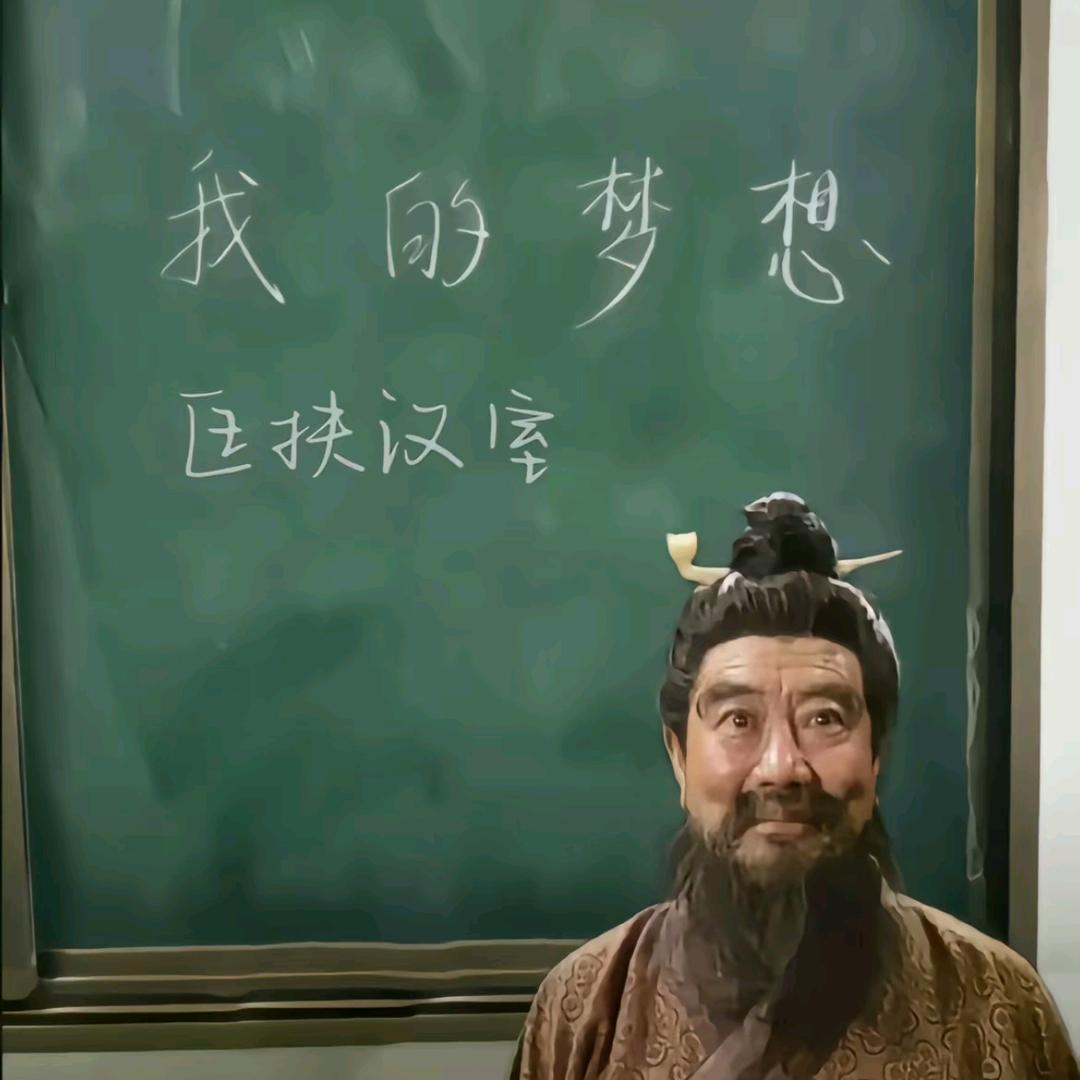 我的梦想
匡扶汉室